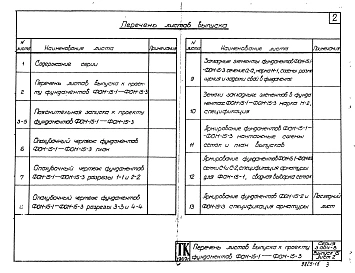 2
Перечень листов выпуска
N листа
Наименование листа
Примечание
1
Содержание серии
2
Перечень листов выпуска к проек-
ту фундаментов ФОН-15-1—ФОН-15-3
3-5
Пояснительная записка к проекту
фундаментов ФОН-15-1—ФОН-15-3
6
Опалубочный чертеж фундаментов
ФОН-15-1—ФОН-15-3 план
7
Опалубочный чертеж фундаментов
ФОН-15-1—ФОН-15-3 разрезы 1-1 и 2-2
8
Опалубочный чертеж фундаментов
ФОН-15-1—ФОН-15-3 разрезы 3-3 и 4-4
N листа
Наименование листа
Примечание
9
Закладные элементы фундаментов ФОН-15-1-
10
Детали закладных элементов в фунда-
ментах ФОН-15-1—ФОН-15-3 марка М-2,
спецификация
11
Армирование фундаментов ФОН-15-1—
-ФОН-15-3 монтажные схемы
сеток и план выпусков
12
Армирование фундаментов ФОН-15-1-ФОН-15-3
сетки С1 и С2, спецификация арматуры
для ФОН-15-1, сводная выборка сеток
13
Армирование фундаментов ФОН-15-2 и
ФОН-15-3 спецификация арматуры
Последний
лист
ТК
Перечень листов выпуска к проекту
фундаментов ФОН-15-1—ФОН-15-3
Серия
Лист 2
3